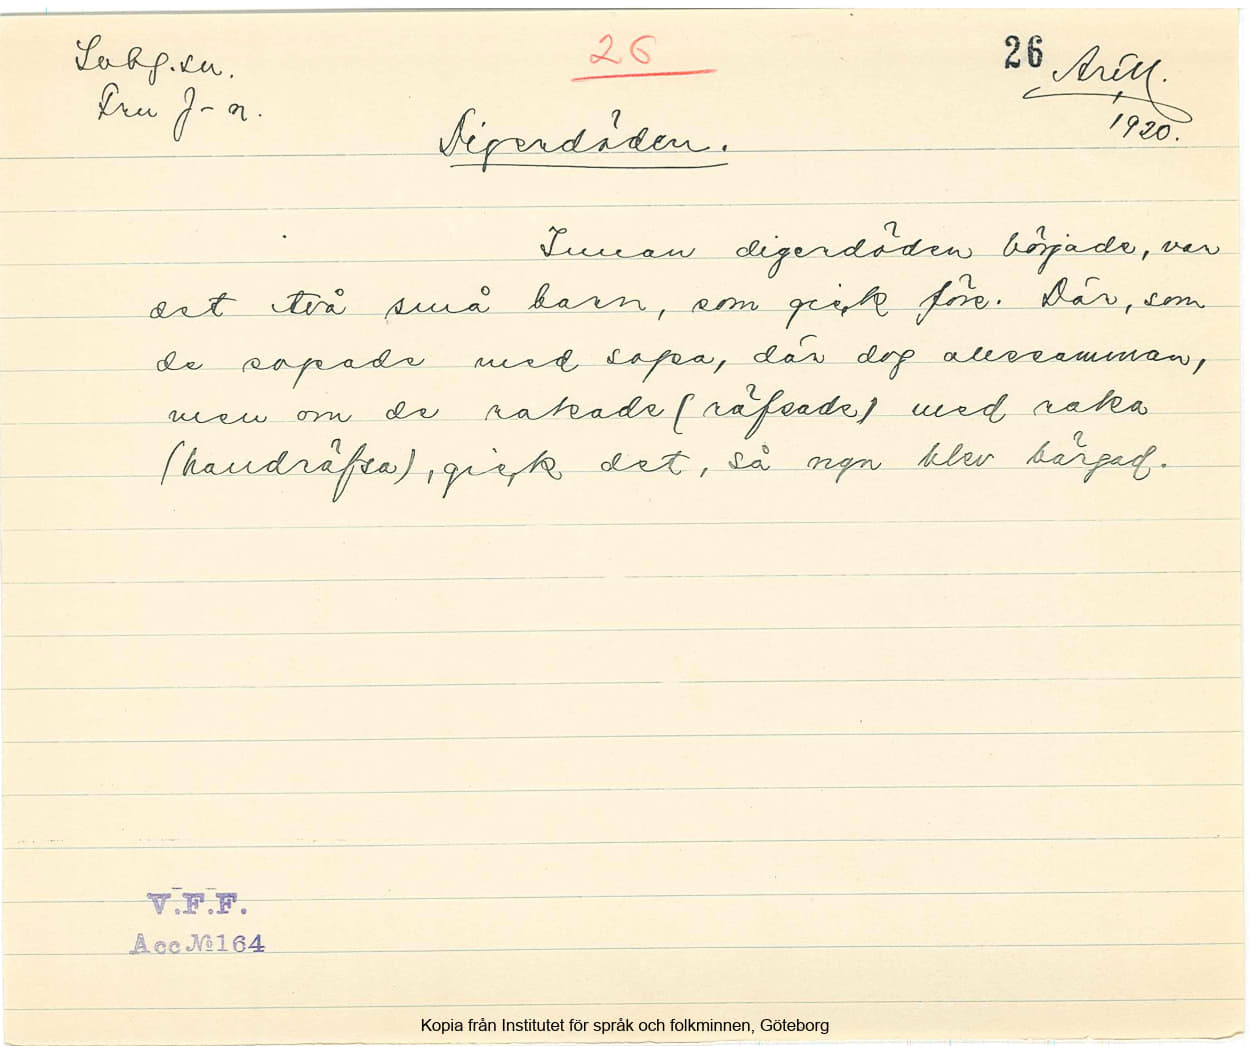 26
26 Arill.
Sobg.sn.
Fru J-n.
1920.
Digerdöden.
Innan digerdöden började, var
det två små barn, som gick före. Där, som
de sopade med sopa, där dog allesamman,
men om de rakade (räfsade) med raka
(handräfsa), gick det, så ngn blev bärgad.
V.F.F.
Acc № 164
Kopia från Institutet för språk och folkminnen, Göteborg